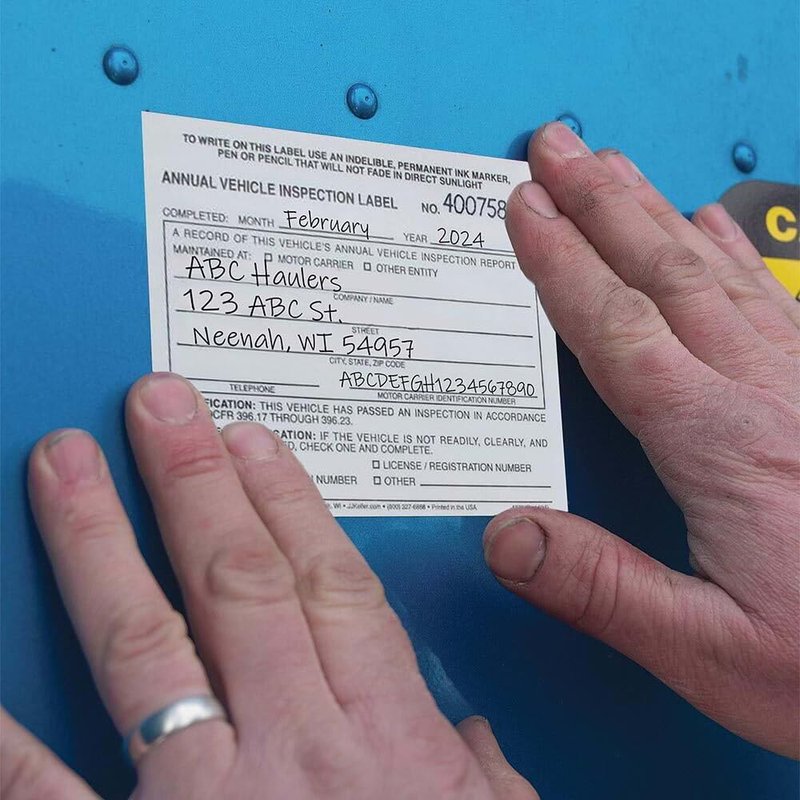 TO WRITE ON THIS LABEL USE AN INDELIBLE, PERMANENT INK MARKER,
PEN OR PENCIL THAT WILL NOT FADE IN DIRECT SUNLIGHT
ANNUAL VEHICLE INSPECTION LABEL NO. 400758
COMPLETED: MONTH February YEAR 2024
A RECORD OF THIS VEHICLE'S ANNUAL VEHICLE INSPECTION REPORT
MAINTAINED AT: ☐ MOTOR CARRIER ☐ OTHER ENTITY
ABC Haulers
COMPANY / NAME
123 ABC St.
STREET
Neenah, WI 54957
CITY, STATE, ZIP CODE
ABCDEFGH1234567890
TELEPHONE MOTOR CARRIER IDENTIFICATION NUMBER
FICATION: THIS VEHICLE HAS PASSED AN INSPECTION IN ACCORDANCE
CFR 396.17 THROUGH 396.23.
CATION: IF THE VEHICLE IS NOT READILY, CLEARLY, AND
ED, CHECK ONE AND COMPLETE.
☐ LICENSE / REGISTRATION NUMBER
N NUMBER ☐ OTHER
WI • JJKeller.com • (800) 327-6868 • Printed in the USA
C